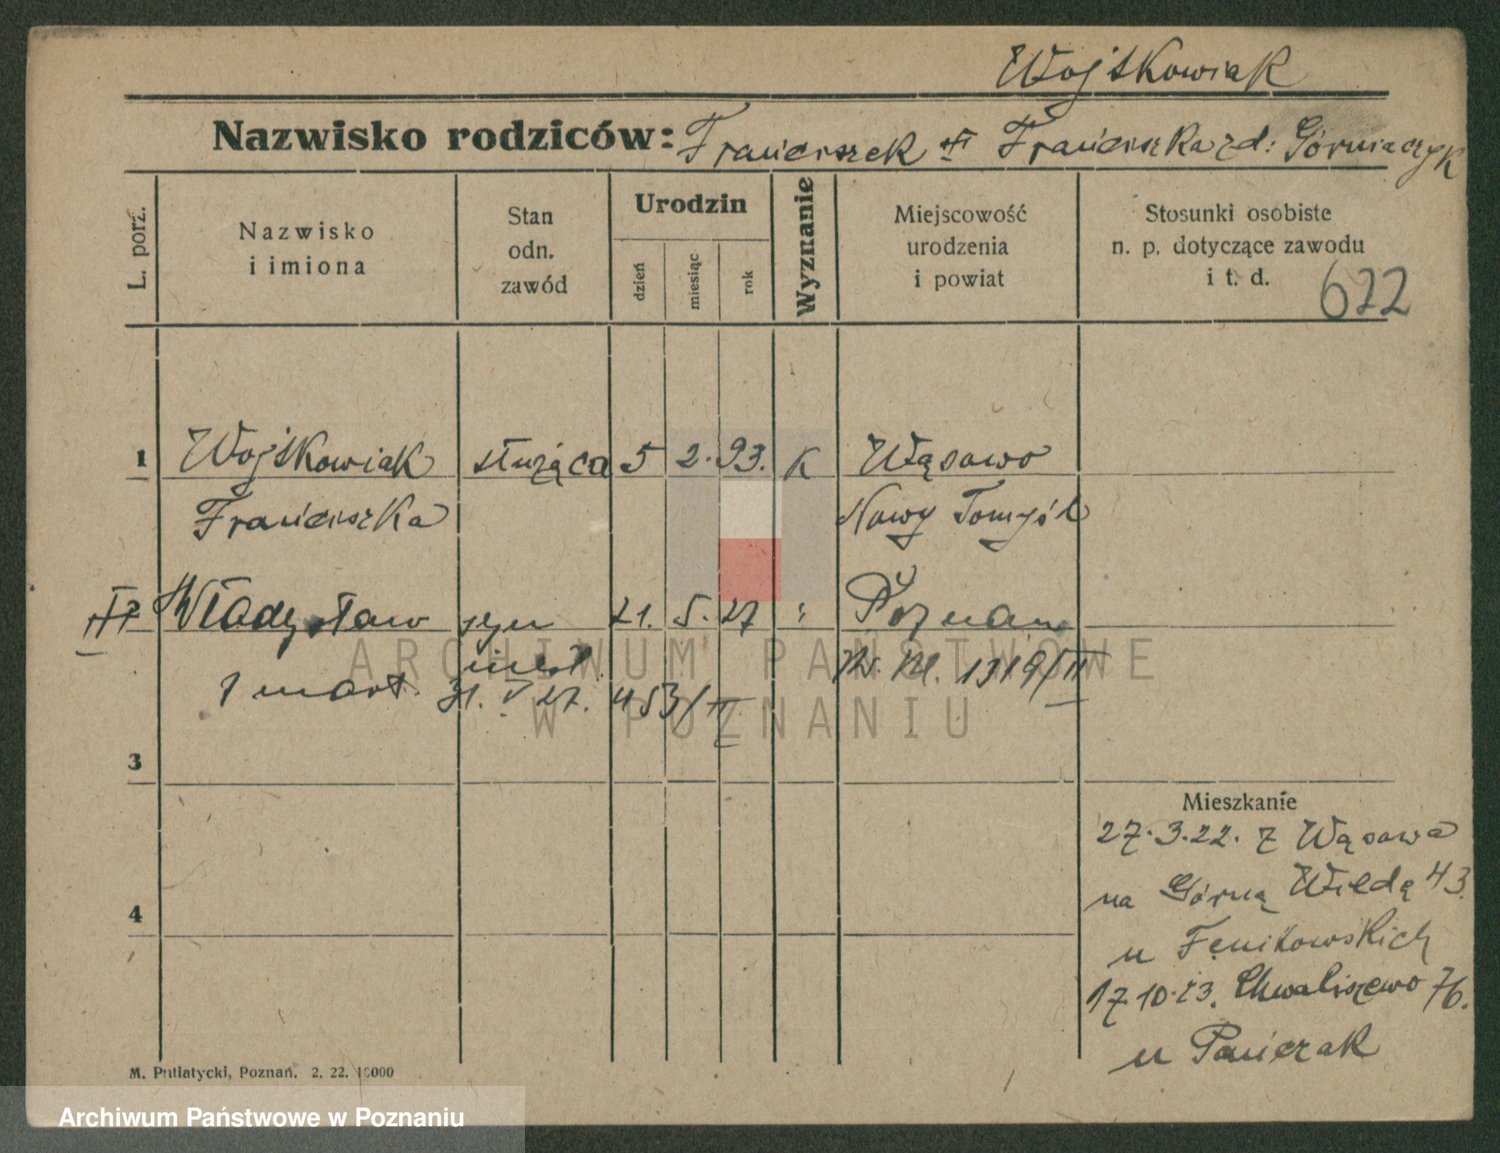 Wojtkowiak
Nazwisko rodziców: Franciszek # Franciszka zd: Górniaczyk
L. porz.
Nazwisko
i imiona
Stan
odn.
zawód
Urodzin
dzień
miesiąc
rok
Wyznanie
Miejscowość
urodzenia
i powiat
Stosunki osobiste
n. p. dotyczące zawodu
i t. d.
622
1 Wojtkowiak służąca 5 2. 93. K Wąsowo
Franciszka Nowy Tomyśl
2 Władysław syn 21. 5. 27 " Poznań
nieśl. 1319/II
1 mart. 31. V 27. 453/II
3
Mieszkanie
27.3.22. z Wąsowa
na Górną Wildę 43.
u Fenikowskich
17 10.23. Chwaliszewo 76.
u Panierzak
4
M. Putiatycki, Poznań. 2. 22. 10000
ARCHIWUM PAŃSTWOWE
W POZNANIU
Archiwum Państwowe w Poznaniu